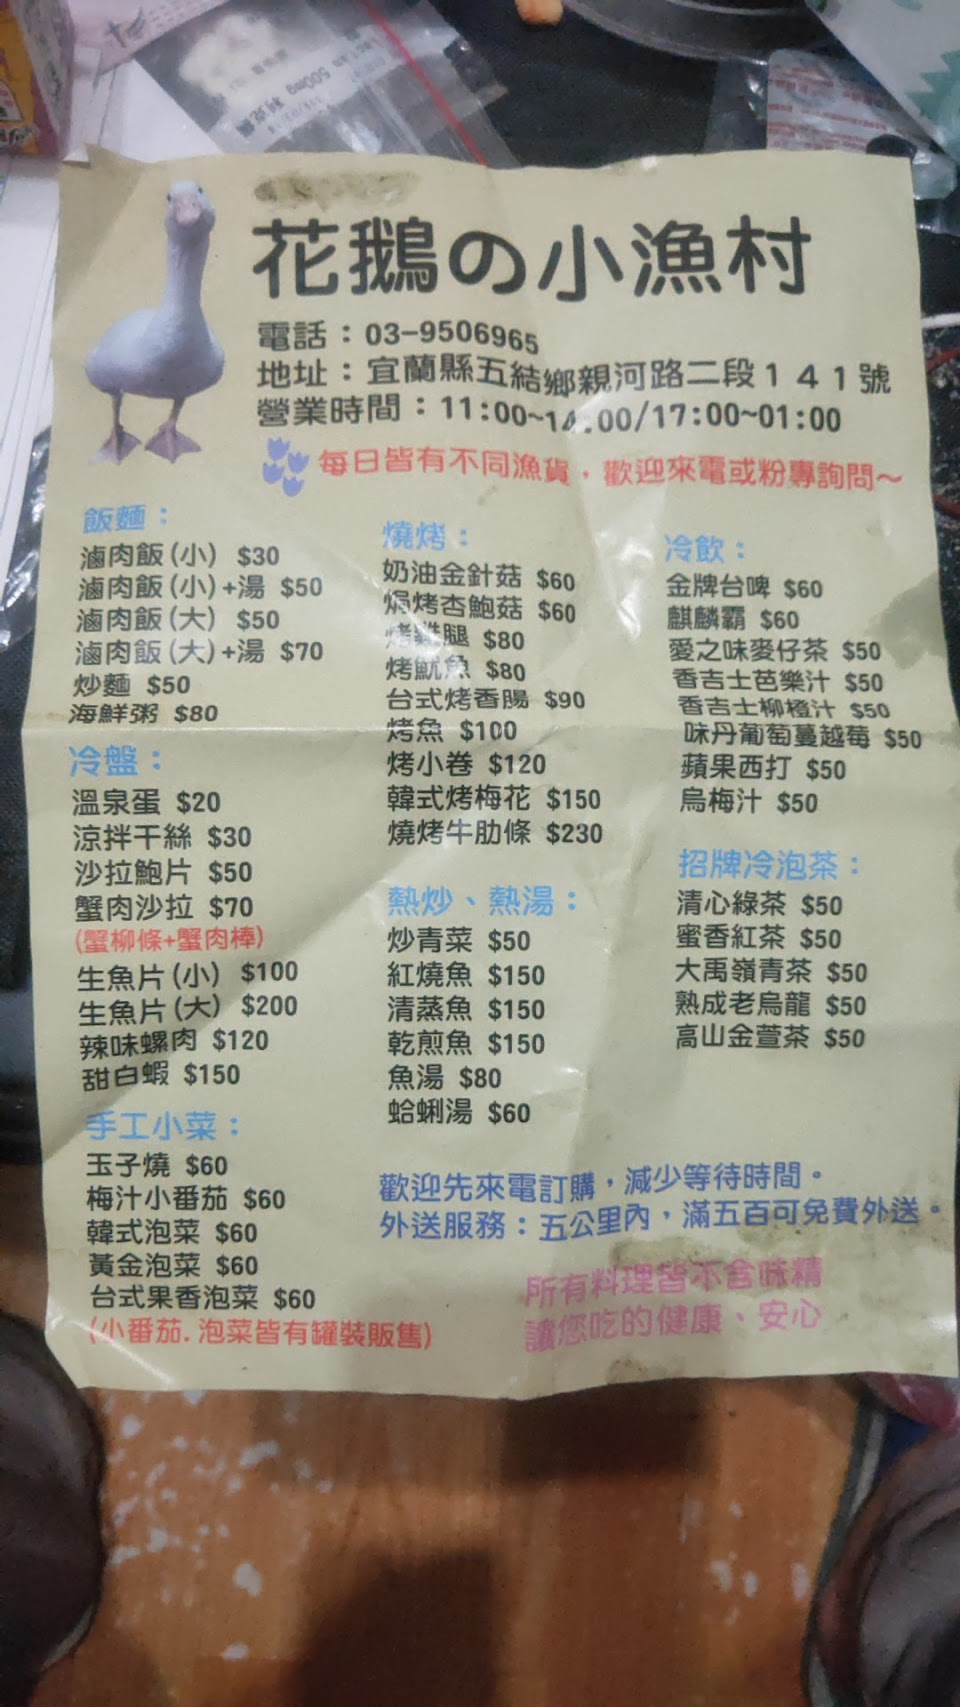 500mg
花鵝の小漁村
電話：03-9506965
地址：宜蘭縣五結鄉親河路二段１４１號
營業時間：11:00~14:00/17:00~01:00
每日皆有不同漁貨，歡迎來電或粉專詢問～
飯麵：
滷肉飯(小) $30
滷肉飯(小)+湯 $50
滷肉飯(大) $50
滷肉飯(大)+湯 $70
炒麵 $50
海鮮粥 $80
冷盤：
溫泉蛋 $20
涼拌干絲 $30
沙拉鮑片 $50
蟹肉沙拉 $70
(蟹柳條+蟹肉棒)
生魚片(小) $100
生魚片(大) $200
辣味螺肉 $120
甜白蝦 $150
手工小菜：
玉子燒 $60
梅汁小番茄 $60
韓式泡菜 $60
黃金泡菜 $60
台式果香泡菜 $60
(小番茄.泡菜皆有罐裝販售)
燒烤：
奶油金針菇 $60
焗烤杏鮑菇 $60
烤雞腿 $80
烤魷魚 $80
台式烤香腸 $90
烤魚 $100
烤小卷 $120
韓式烤梅花 $150
燒烤牛肋條 $230
熱炒、熱湯：
炒青菜 $50
紅燒魚 $150
清蒸魚 $150
乾煎魚 $150
魚湯 $80
蛤蜊湯 $60
冷飲：
金牌台啤 $60
麒麟霸 $60
愛之味麥仔茶 $50
香吉士芭樂汁 $50
香吉士柳橙汁 $50
味丹葡萄蔓越莓 $50
蘋果西打 $50
烏梅汁 $50
招牌冷泡茶：
清心綠茶 $50
蜜香紅茶 $50
大禹嶺青茶 $50
熟成老烏龍 $50
高山金萱茶 $50
歡迎先來電訂購，減少等待時間。
外送服務：五公里內，滿五百可免費外送。
所有料理皆不含味精
讓您吃的健康、安心